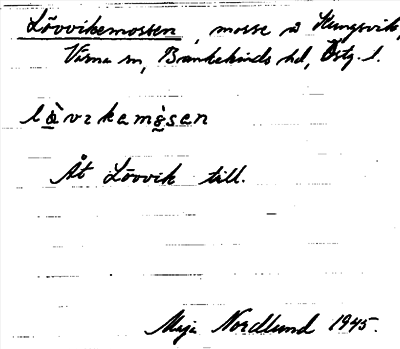 Lövvikemossen, mosse å Kungsvik,
Värna sn, Bankekinds hd, Östg. l.
lo̤̍vɪkamo̤̍sən
Åt Lövvik till.
Maja Nordlund 1945.